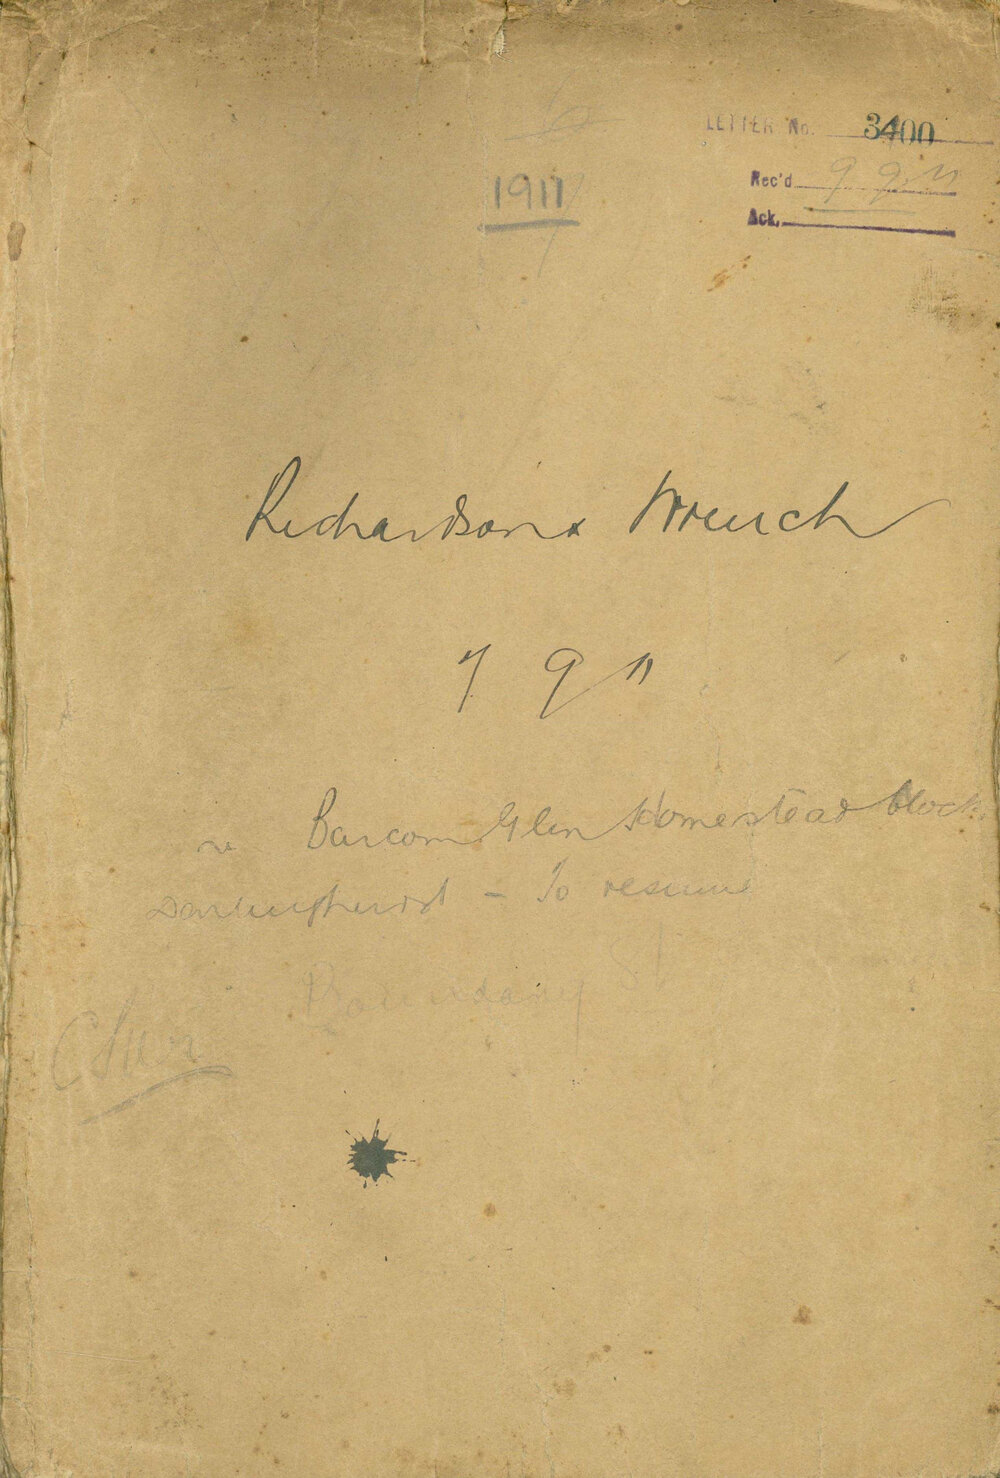 LETTER No. 3400
1911
Rec'd 9 9 11
Ack.
Richardson & Wrench
7 9 11
re Barcom Glen Homestead block
Darlinghurst - To resume
Boundary St